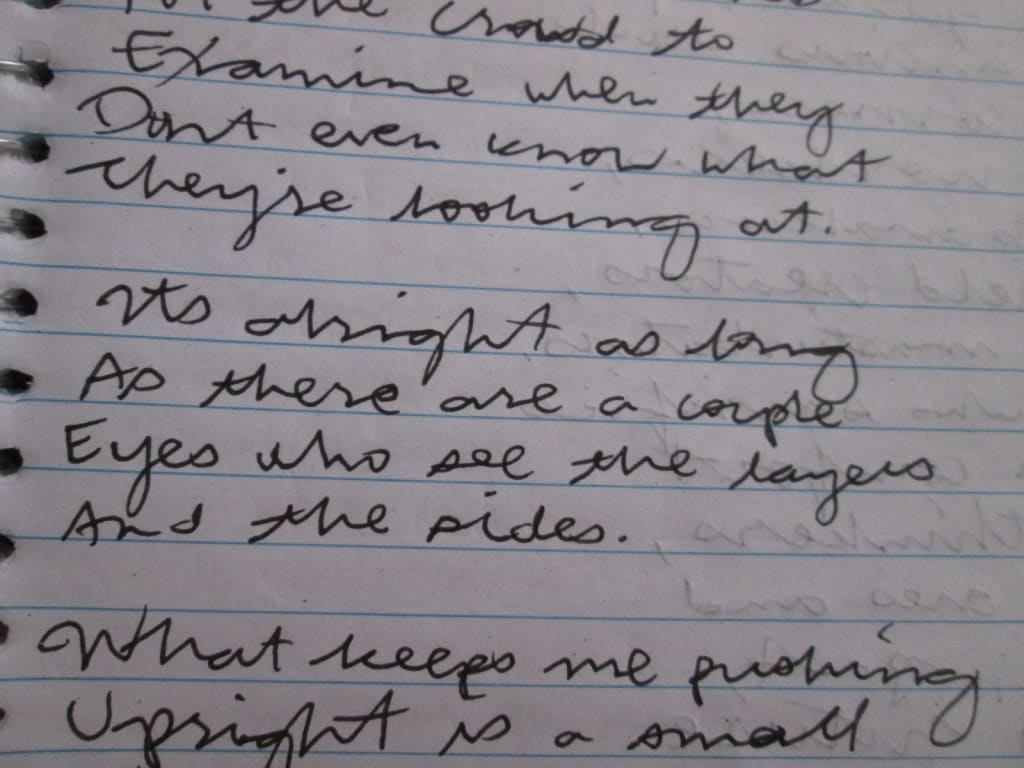 For the crowd to
Examine when they
Dont even know what
They're looking at.
Its alright as long
As there are a couple
Eyes who see the layers
And the sides.
What keeps me pushing
Upright is a small